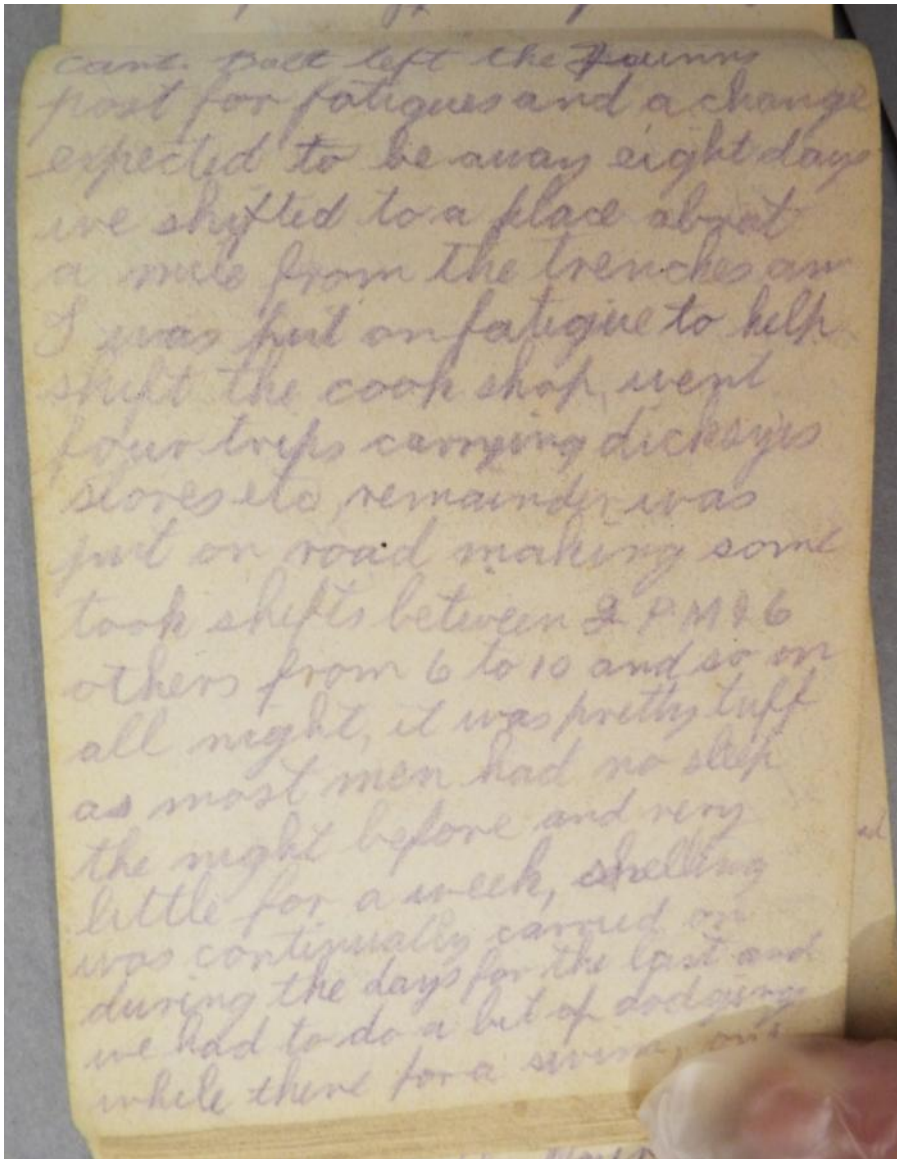 cant. Batt left the
post for fatigues and a change
expected to be away eight days
we shifted to a place about
a mile from the trenches an
I was put on fatigue to help
shift the cook shop, went
four trips carrying dickseyis
stores etc, remainder was
put on road making some
took shifts between 2 PM & 6
others from 6 to 10 and so on
all night, it was pretty tuff
as most men had no sleep
the night before and very
little for a week, shelling
was continually carried on
during the days for the last and
we had to do a bit of dodging
while there for a swim, our